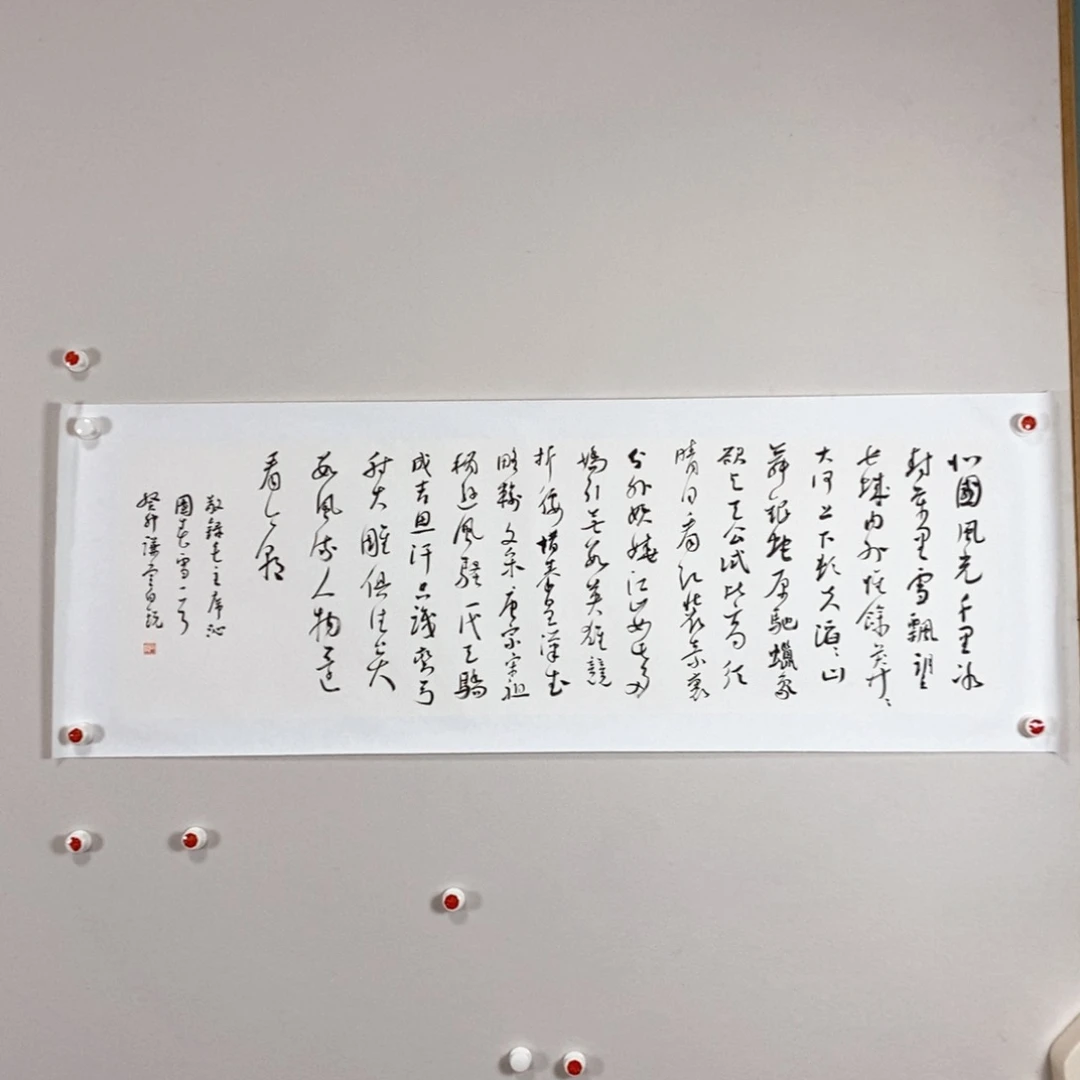 北國風光千里冰
封萬里雪飄望
长城内外惟餘莽々
大河上下頓失滔々山
舞銀蛇原馳蠟象
欲与天公試比高須
晴日看紅裝素裹
分外妖嬈江山如此多
嬌引無數英雄競
折腰惜秦皇漢武
略輸文采唐宗宋祖
稍遜風騷一代天驕
成吉思汗只識彎弓
射大雕俱往矣
數風流人物還
看今朝
敬錄毛主席沁
園春雪一首
癸卯